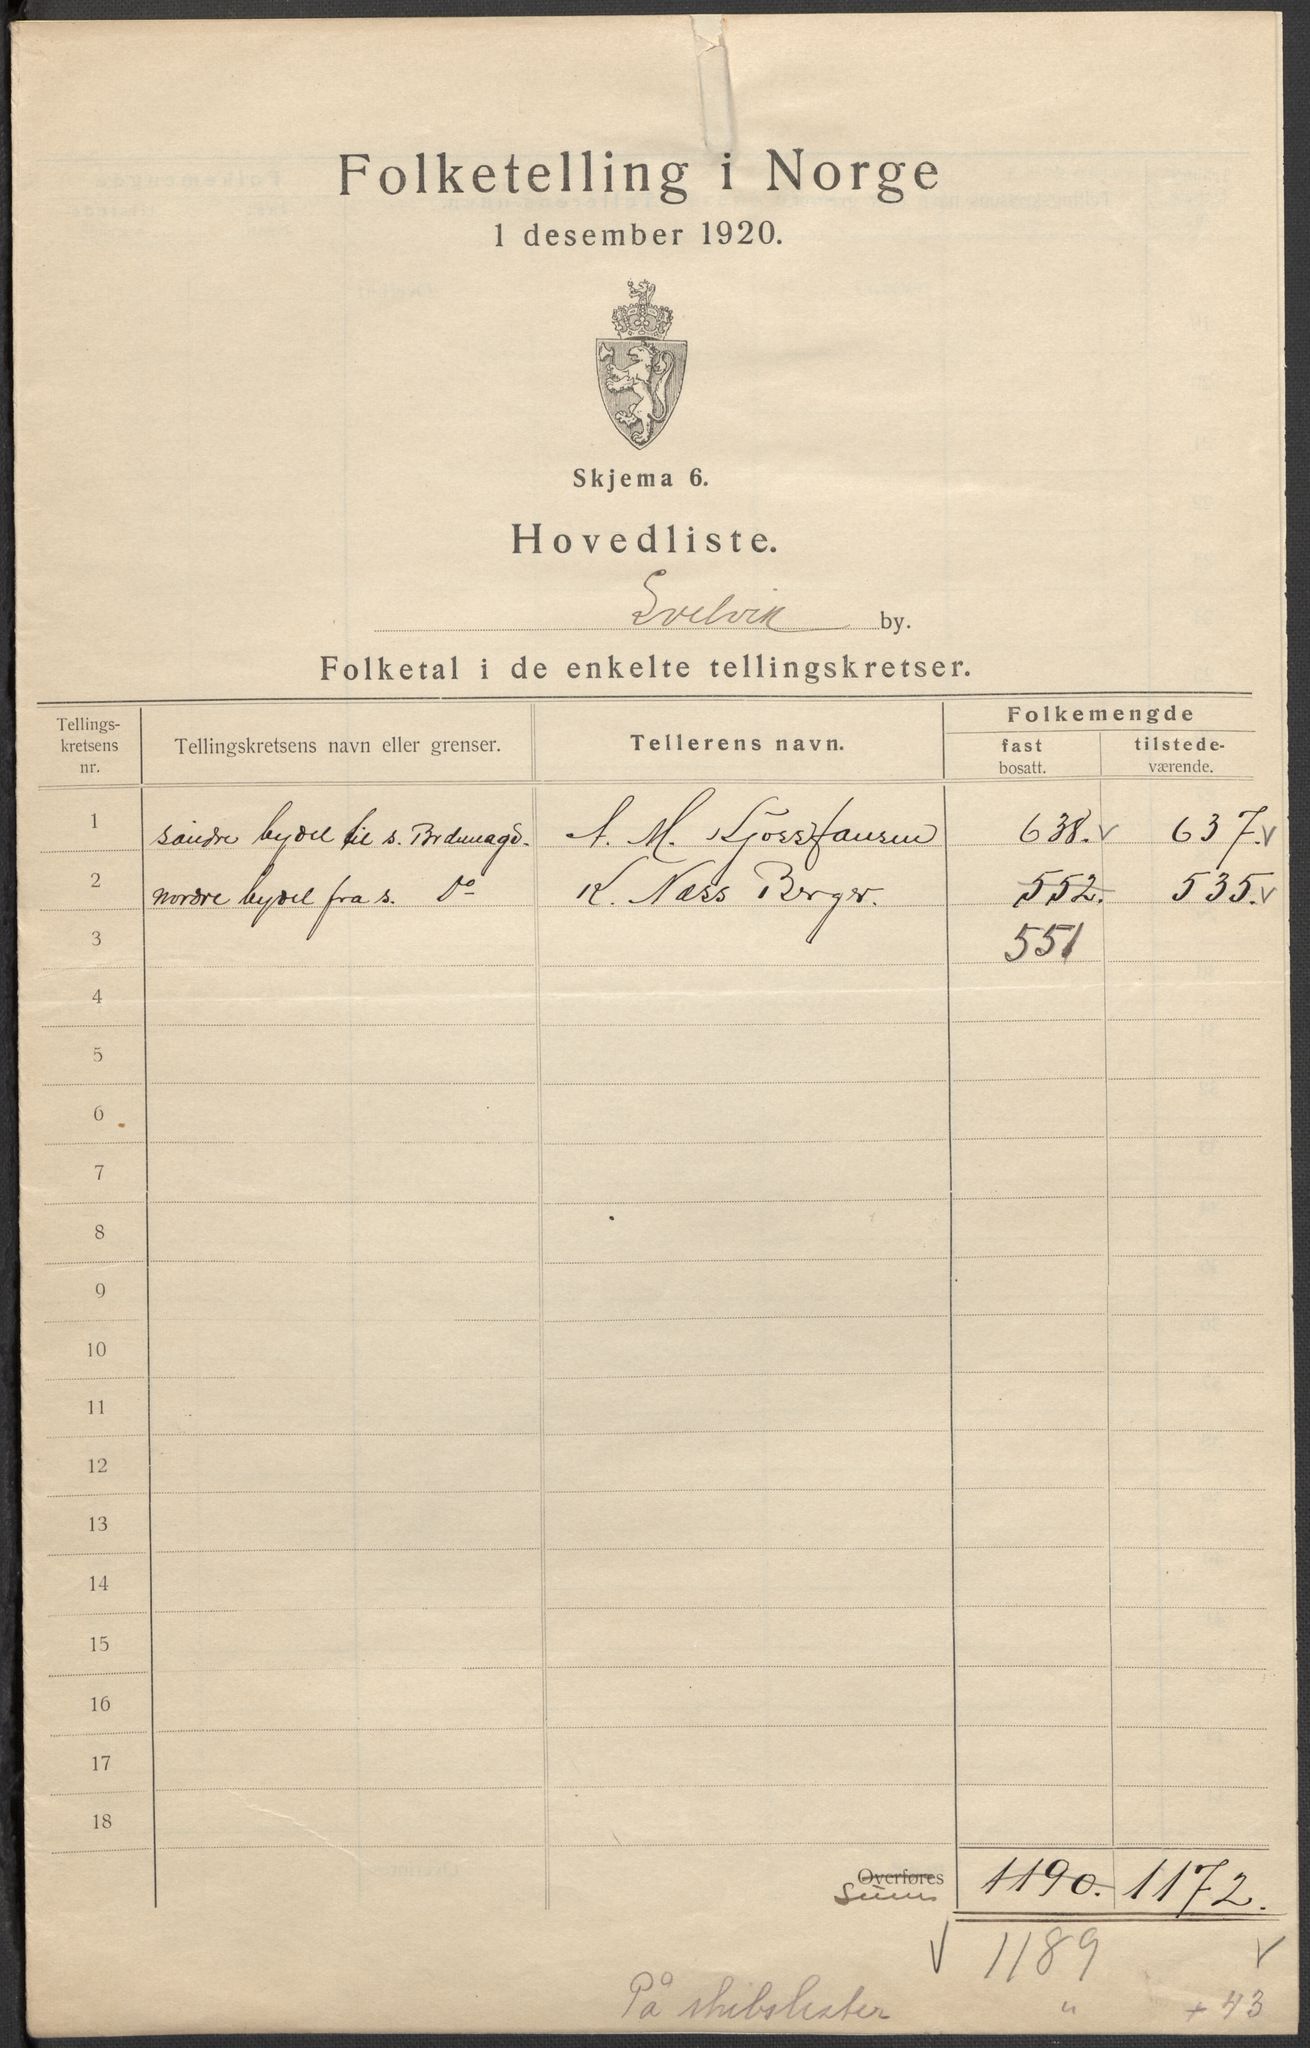 Folketelling i Norge
1 desember 1920.
Skjema 6.
Hovedliste.
Svelvik by.
Folketal i de enkelte tellingskretser.
Tellings-kretsens nr. Tellingskretsens navn eller grenser. Tellerens navn. Folkemengde
fast bosatt. tilstede-værende.
1 søndre bydel til s. A. M. Kjøss Hansen 638. v 637. v
2 nordre bydel fra s. Do K. Næss Berger. 552. 535. v
3 551
4
5
6
7
8
9
10
11
12
13
14
15
16
17
18
Overføres 1190. 1172.
Sum
v 1189 v
På skibslister " + 43